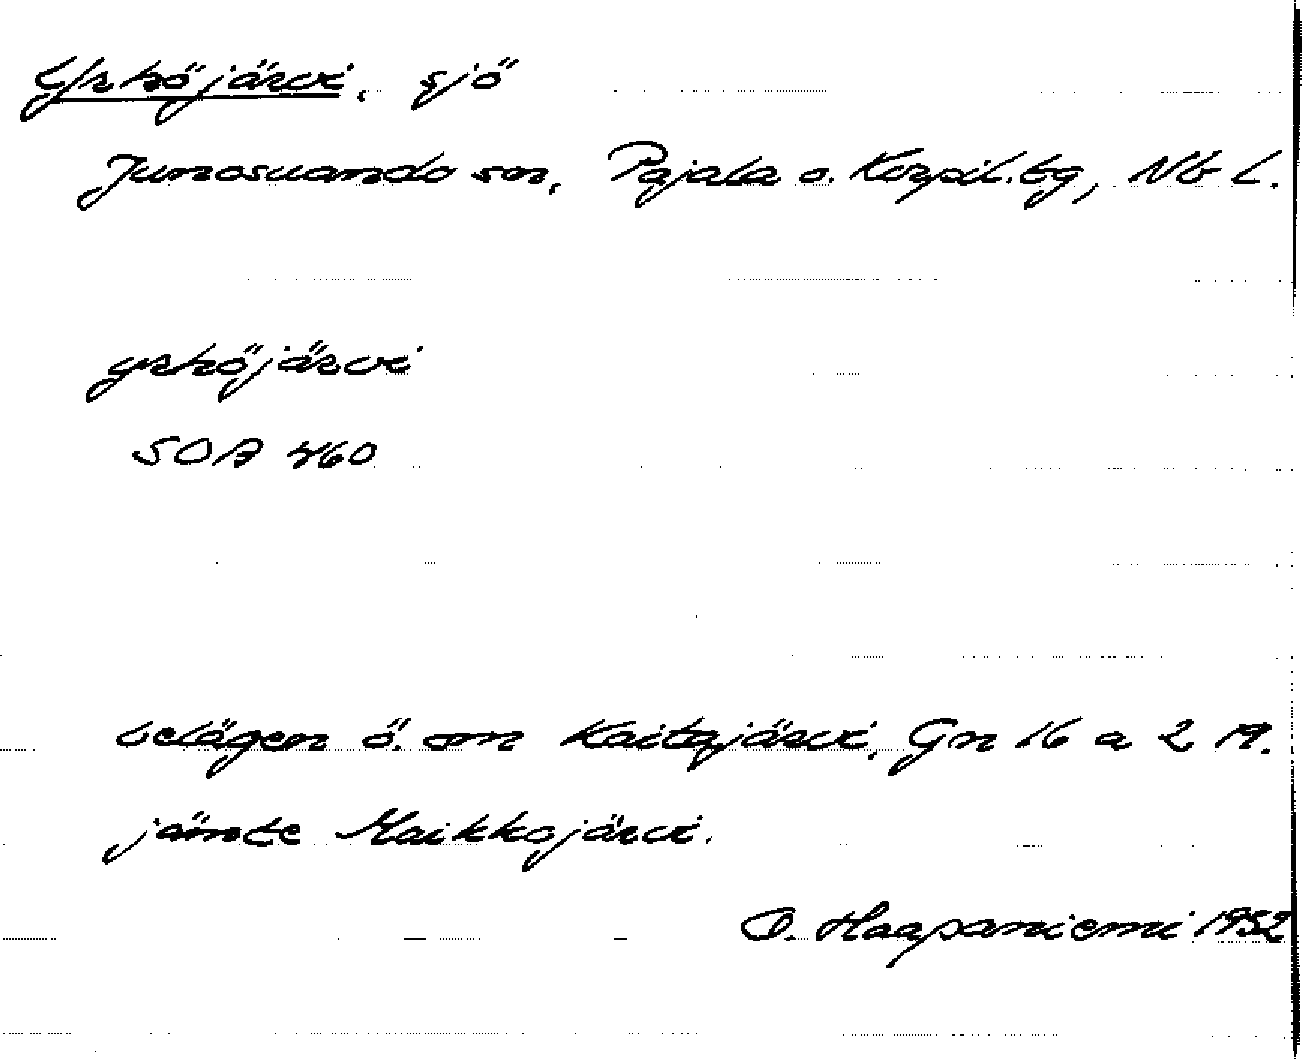 Yrköjärvi, sjö
Junosuando sn, Pajala o. Korpil. tg, Nb L.
yrköjärvi
SOA 460
belägen ö. om Kaitajärvi, Gn 16 a 2 19.
jämte Maikkojärvi.
O. Haapaniemi 1952